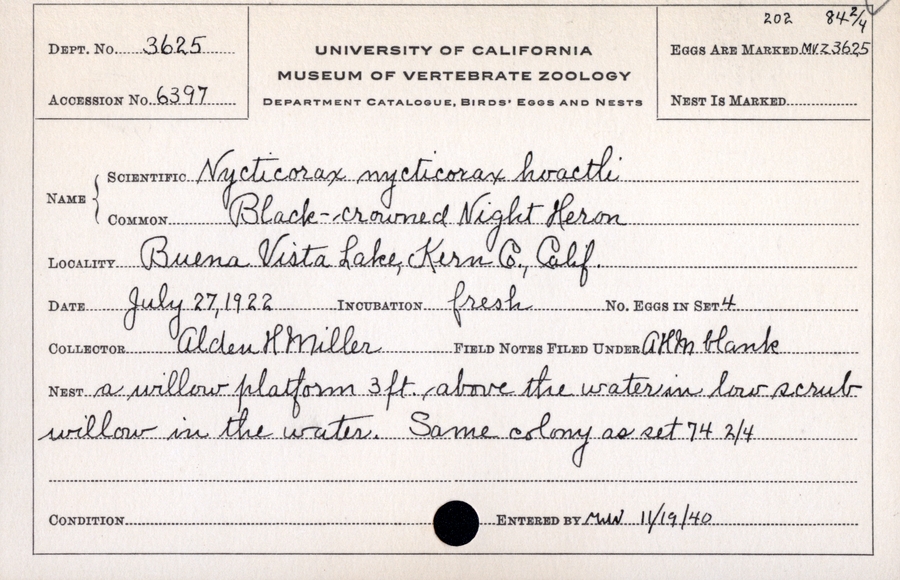 202 84 2/4
Dept. No. 3625
UNIVERSITY OF CALIFORNIA
Eggs Are Marked MVZ3625
MUSEUM OF VERTEBRATE ZOOLOGY
Accession No. 6397
Department Catalogue, Birds' Eggs and Nests
Nest Is Marked
Name { Scientific Nycticorax nycticorax hoactli
Common Black-crowned Night Heron
Locality Buena Vista Lake, Kern Co., Calif.
Date July 27, 1922 Incubation fresh No. Eggs in Set 4
Collector Alden H Miller Field Notes Filed Under AHM blank
Nest a willow platform 3 ft. above the water in low scrub
willow in the water. Same colony as set 74 2/4
Condition Entered by 11/19/40